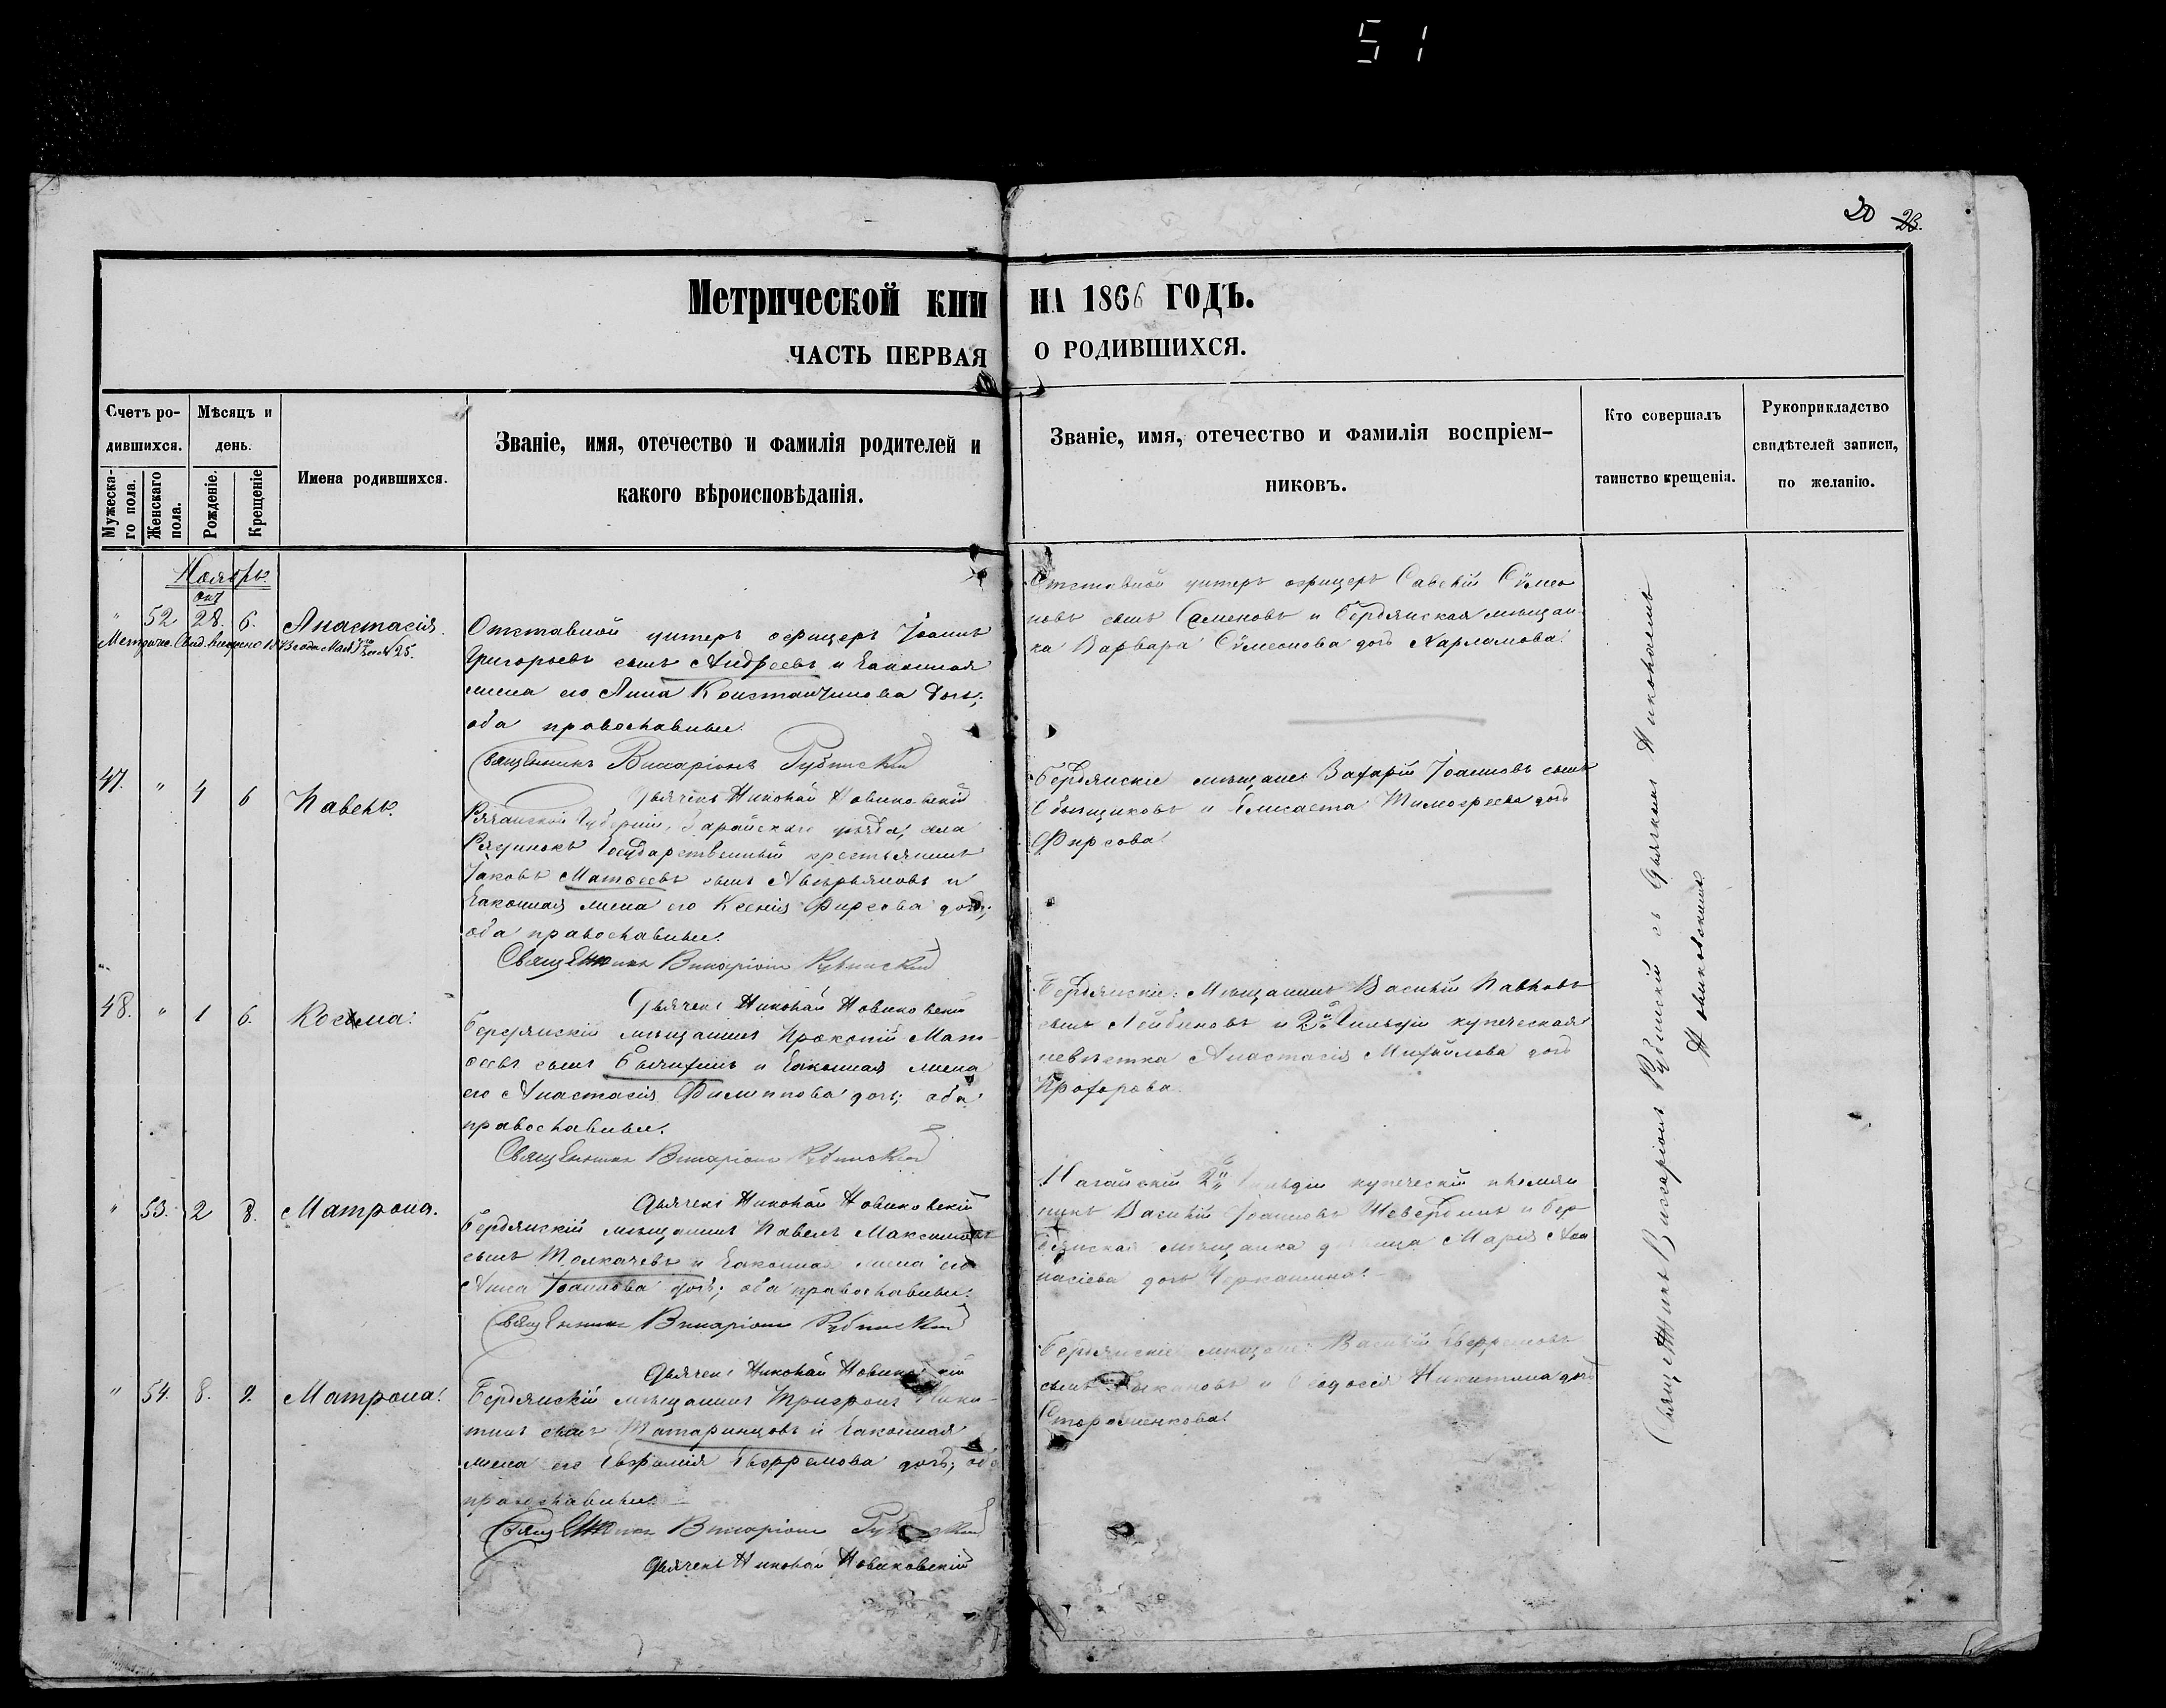 51
20 23.
Метрической кни НА 1866 ГОДЪ.
ЧАСТЬ ПЕРВАЯ О РОДИВШИХСЯ.
Счетъ ро-
дившихся.
Мужеска-
го пола.
Женскаго
пола.
Мѣсяцъ и
день.
Рожденіе.
Крещеніе
Имена родившихся.
Званіе, имя, отечество и фамилія родителей и
какого вѣроисповѣданія.
Званіе, имя, отечество и фамилія воспріем-
никовъ.
Кто совершалъ
таинство крещенія.
Рукоприкладство
свидѣтелей записи,
по желанію.
Ноябрь.
окт
" 52 28. 6. Анастасія.
Отставной унтеръ офицеръ Іоаннъ
Григорьевъ сынъ Андреевъ и законная
жена его Анна Константинова дочь;
оба православные.
Священникъ Висаріонъ Рубинскій
Дьячекъ Николай Новиковскій
Отставной унтеръ офицеръ Савелій Сѵмео
новъ сынъ Семеновъ и Бердянская мѣщан
ка Варвара Сѵмеонова дочь Харламова.
47. " 4 6 Павелъ.
Рязанской Губерніи, Зарайскаго уѣзда, села
Государственный крестьянинъ
Іаковъ Матѳеевъ сынъ Аверьяновъ и
законная жена его Ксенія Фирсова дочь;
оба православные.
Священникъ Висаріонъ Рубинскій
Дьячекъ Николай Новиковскій
Бердянскіе мѣщане: Захарій Іоанновъ сынъ
и Елисавета Тимофеева дочь
Фирсова.
48. " 1 6. Косма.
Бердянскій мѣщанинъ Прокопій Мат-
ѳеевъ сынъ и законная жена
его Анастасія Филиппова дочь; оба
православные.
Священникъ Висаріонъ Рубинскій
Дьячекъ Николай Новиковскій
Бердянскіе: Мѣщанинъ Василій Павловъ
сынъ и 2й Гильдіи купеческая
невѣстка Анастасія Михайлова дочь
Прохорова.
" 53. 2 8. Матрона.
Бердянскій мѣщанинъ Павелъ Максимовъ
сынъ Толкачевъ и законная жена его
Анна Іоаннова дочь; оба православные.
Священникъ Висаріонъ Рубинскій
Дьячекъ Николай Новиковскій
Ногайскій 2й гильдіи купеческій племян
никъ Василій Іоанновъ Шевердинъ и Бер
дянская мѣщанка дѣвица Марія Аѳа
насіева дочь Черкашина.
" 54. 8. 9. Матрона.
Бердянскій мѣщанинъ Трифонъ Ники-
тинъ сынъ Татаринцовъ и законная
жена его Евфимія Евфремова дочь; оба
православные.
Священникъ Висаріонъ Рубинскій
Дьячекъ Николай Новиковскій
Бердянскіе мѣщане: Василій Евфремовъ
сынъ и Ѳеодосія Никитина дочь
Священникъ Виссаріонъ Рубинскій съ Дьячкомъ Николаемъ
Новиковскимъ